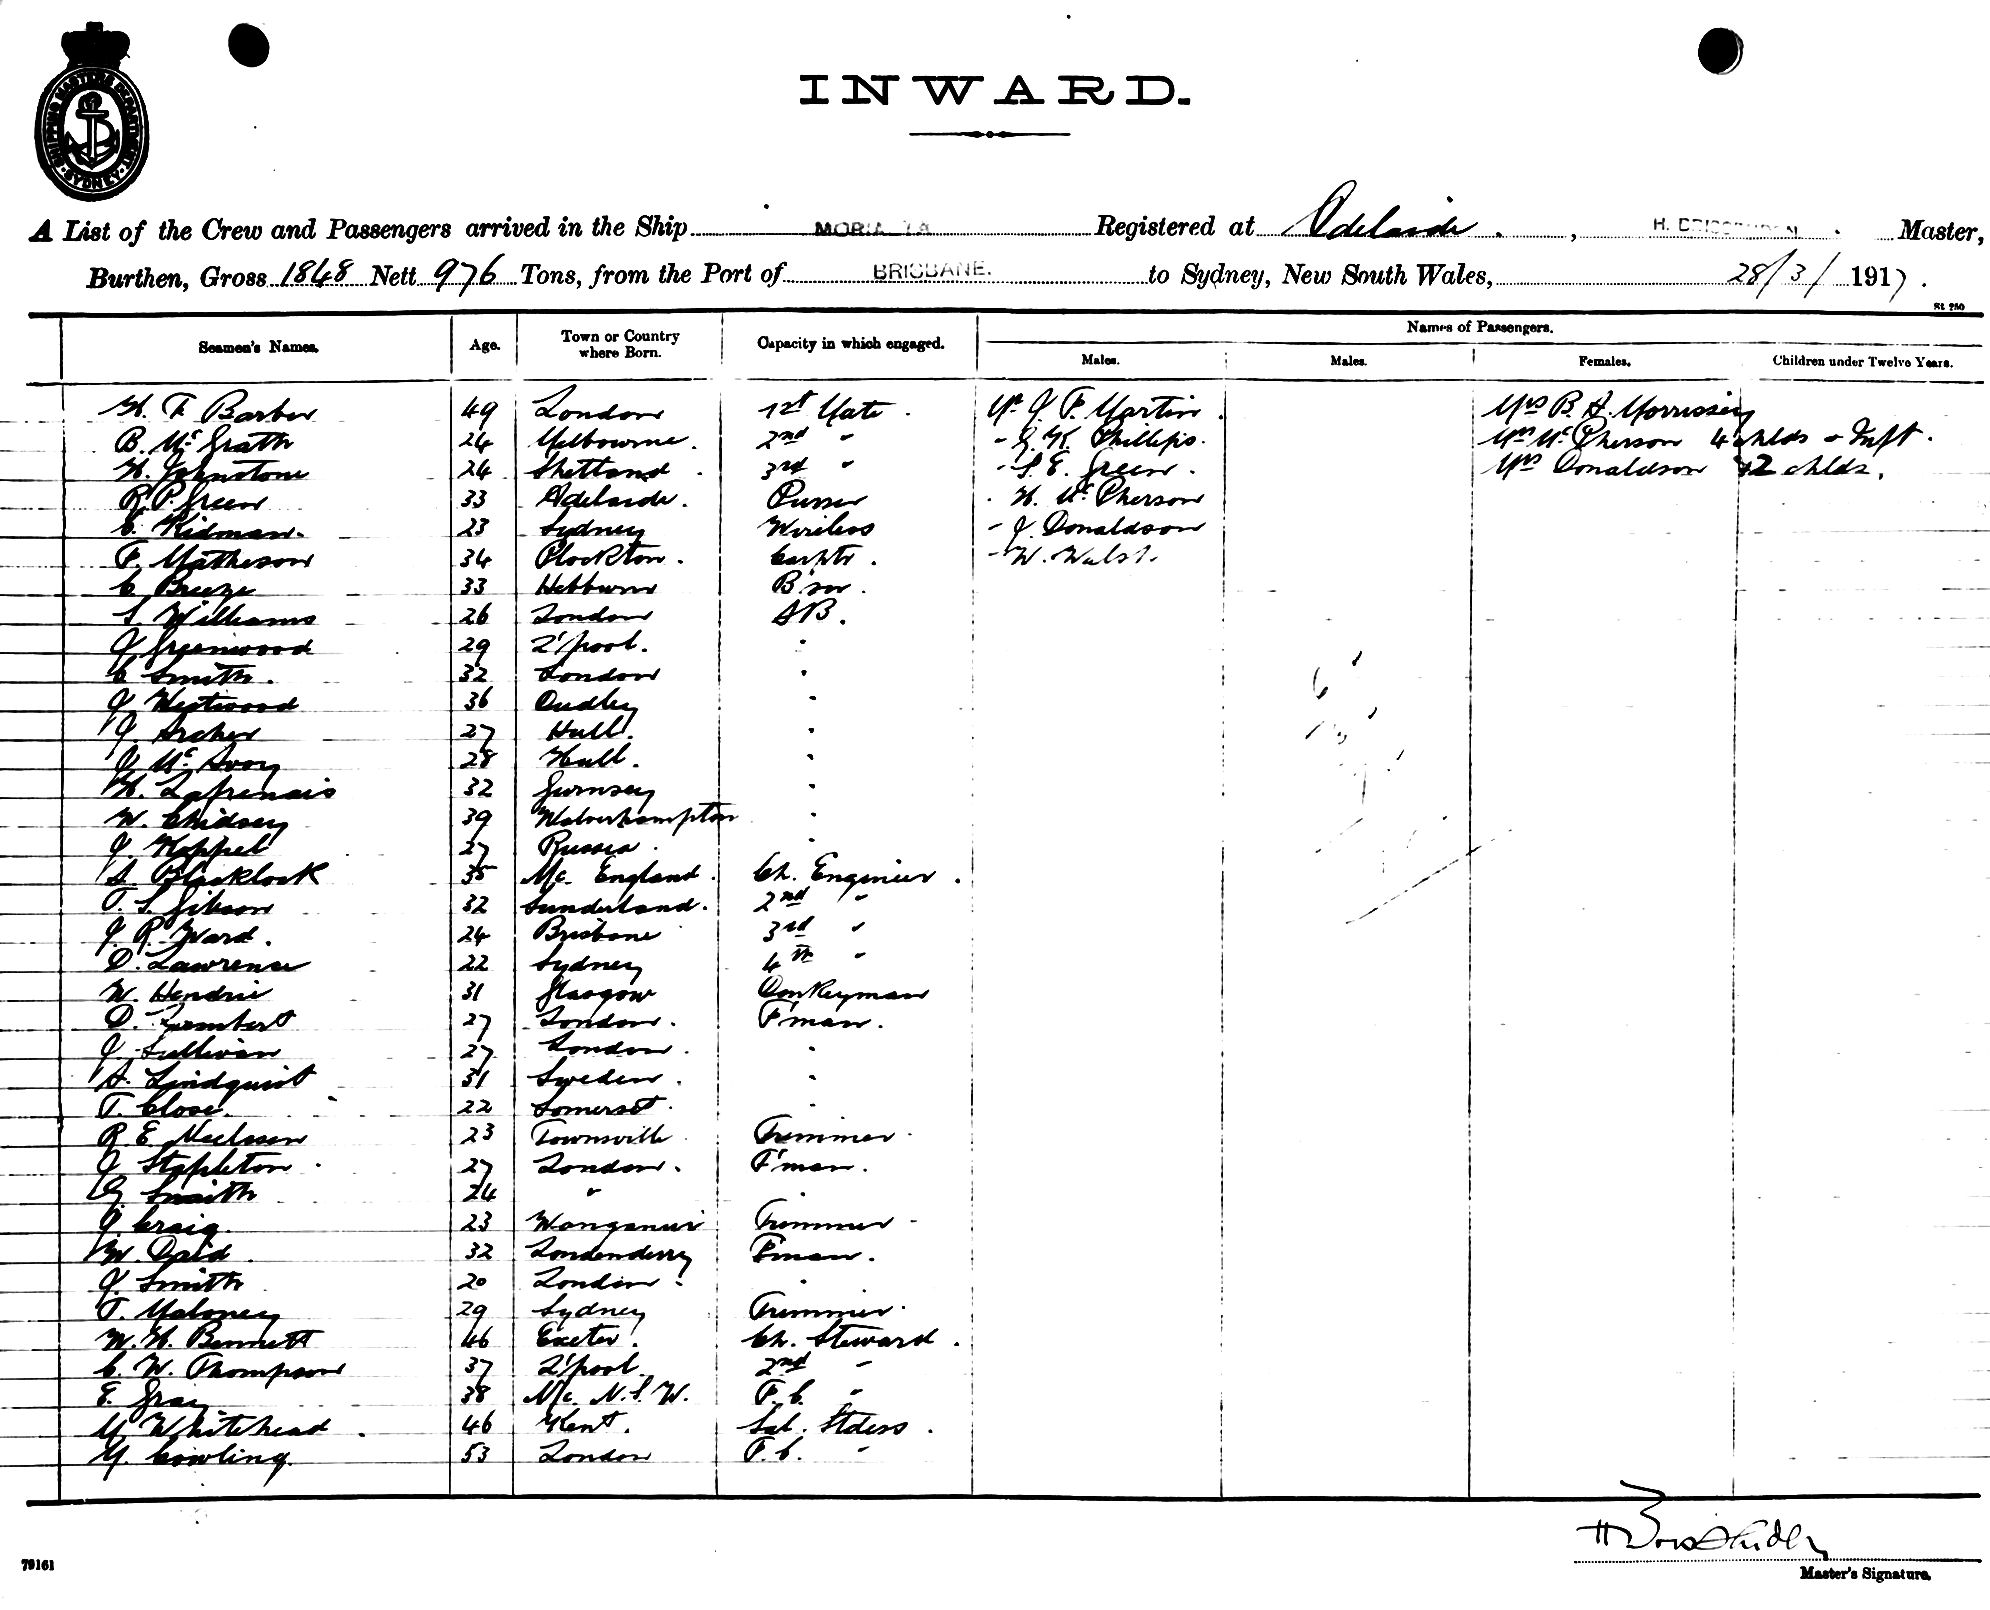 SHIPPING MASTERS DEPARTMENT. SYDNEY.
INWARD.
A List of the Crew and Passengers arrived in the Ship MORIALTA Registered at Adelaide. , H. Master,
Burthen, Gross 1848 Nett 976 Tons, from the Port of BRISBANE. to Sydney, New South Wales, 28/3/1917.
St. 250
Seamen's Names. Age. Town or Country where Born. Capacity in which engaged. Names of Passengers.
Males. Males. Females. Children under Twelve Years.
H. F. Barber 49 London 1st Mate. Mr J. F. Martin. Mrs B. A. Morrissey
B. McGrath 24 Melbourne. 2nd " - G. K. Phillips. Mrs McPherson 4 chlds - Inft.
H. Johnstone 24 Shetland. 3rd " - S. E. Green. Mrs Donaldson 2 chlds.
R. P. Green 33 Adelaide. Purser - H. McPherson
C. Kidman. 23 Sydney Wireless - J. Donaldson
F. Matheson 34 Plockton. Carptr. - W. Walsh.
C. Breeze 33 Hebburn B'sn.
S. Williams 26 London AB.
J. Greenwood 29 L'pool. "
C. Smith. 32 London "
J. Westwood 36 Dudley "
J. Archer 27 Hull. "
J. McAvoy 28 Hull. "
H. Lafrenais 32 Gurnsey "
W. Chidsey 39 Wolverhampton "
J. Koppel 27 Russia. "
A. Blacklock 35 Mc. England. Ch. Engineer.
T. S. Gibson 32 Sunderland. 2nd "
J. R. Ward. 24 Brisbane 3rd "
D. Lawrence 22 Sydney 4th "
W. Hendrie 31 Glasgow Donkeyman
D. Lambert 27 London. F'man.
J. Sullivan 27 London. "
A. Lindquist 31 Sweden. "
T. Close. 22 Somerset. "
R. E. Neilssen 23 Townsville Trimmer.
J. Stapleton. 27 London. F'man.
G. Smith 24 " "
J. Craig. 23 Wanganui Trimmer
W. Daid. 32 Londonderry F'man.
J. Smith 20 London. "
T. Maloney 29 Sydney Trimmer.
W. H. Bennett 46 Exeter. Ch. Steward.
C. W. Thompson 37 L'pool. 2nd "
E. Gray 38 Mc. N.S.W. F.C. "
M. Whitehead. 46 Kent. Sal. Stdess.
M. Cowling. 53 London F.C. "
79161
Master's Signature.